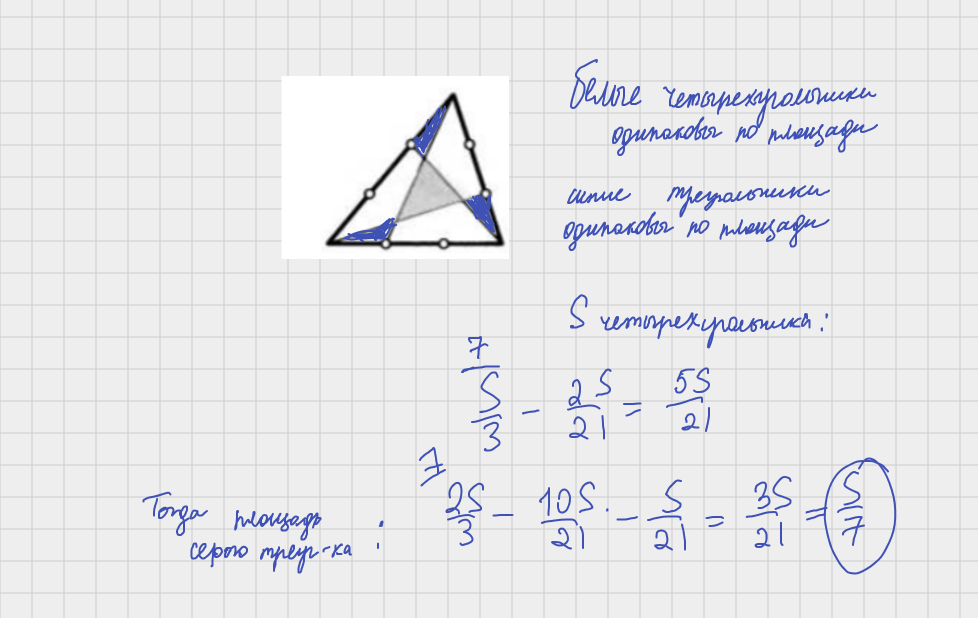 Белые четырехугольники
одинаковы по площади
синие треугольники
одинаковы по площади
S четырехугольника:
7
S/3 - 2S/21 = 5S/21
7
Тогда площадь
серого треуг-ка :
2S/3 - 10S/21 - S/21 = 3S/21 = S/7